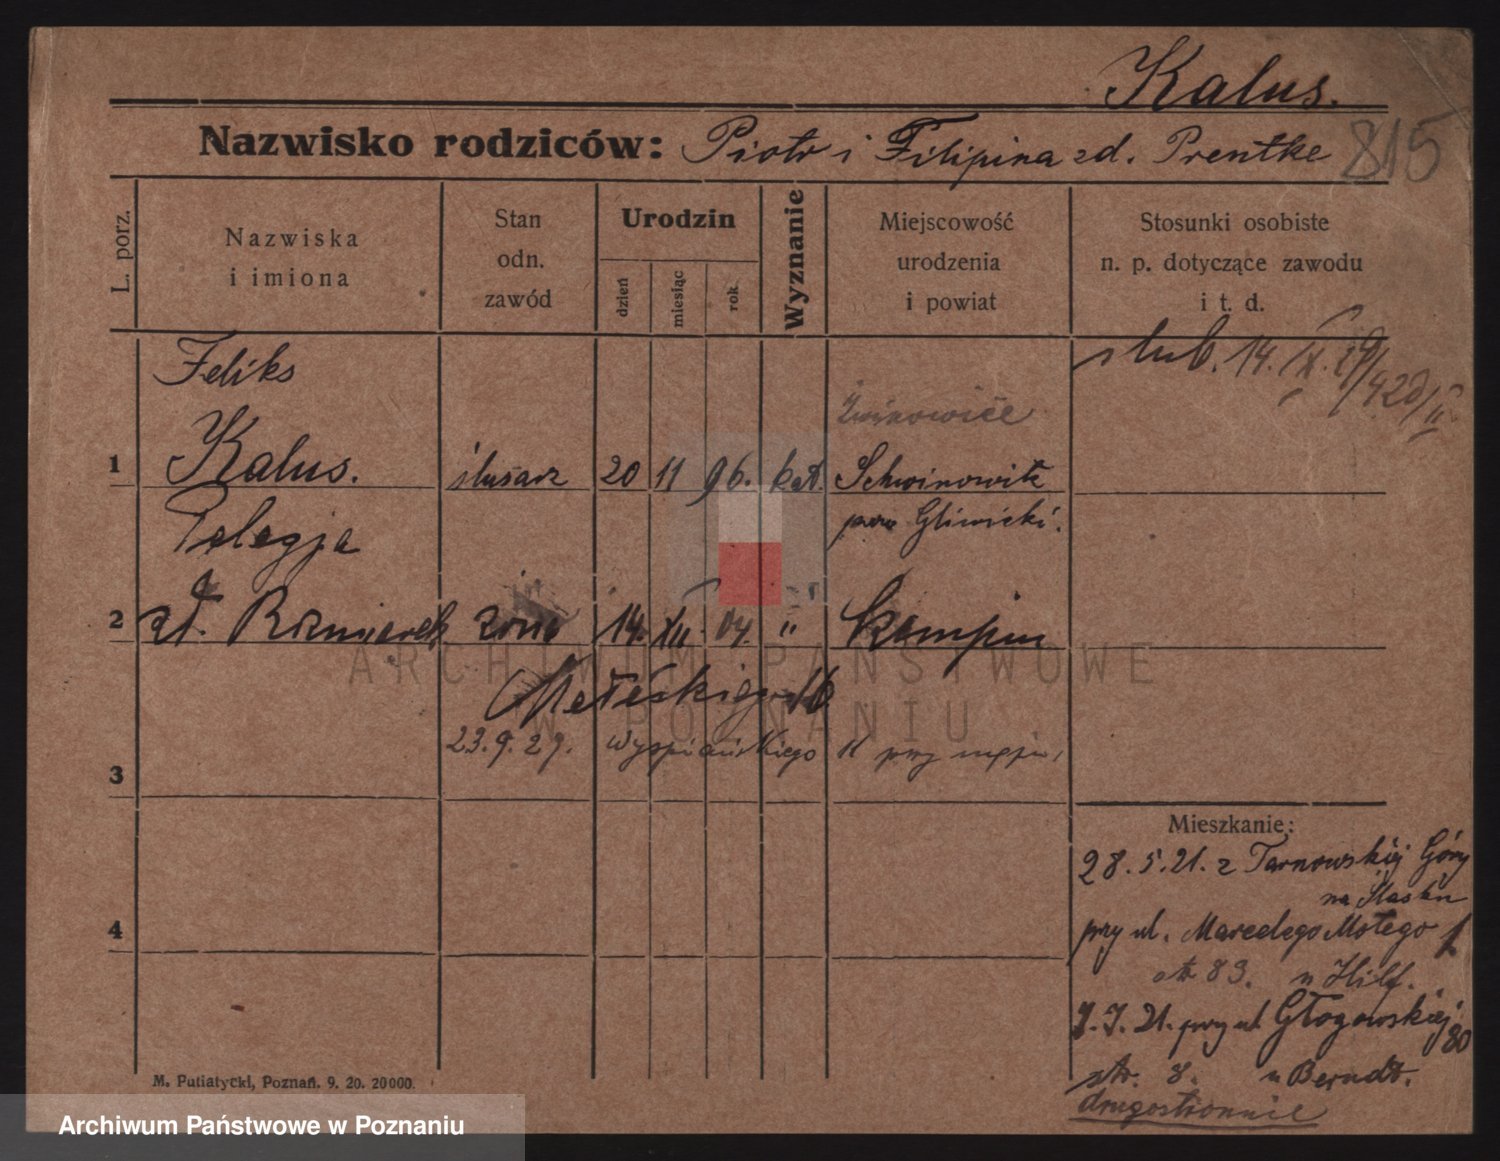 Kalus.
Nazwisko rodziców: Piotr i Filipina zd. Prentke 815
L. porz.
Nazwiska
i imiona
Stan
odn.
zawód
Urodzin
dzień
miesiąc
rok
Wyznanie
Miejscowość
urodzenia
i powiat
Stosunki osobiste
n. p. dotyczące zawodu
i t. d.
Feliks
ślub. 14. IX. 29/420/II
1 Kalus. ślusarz 20 11 96. kat. Schwinowitz
Pelagja pow Gliwicki.
2 zd. żona 14. XII. 04. " Kempin
23.9.29. Wyspiańskiego
3
Mieszkanie:
28.5.21. z Tarnowskiej Góry
na Śląsku
4 przy ul. Marcelego Motego
str 83. u Hilf.
7.7.21. przy ul Głogowskiej 80
str. 8. u Berndt.
drugostronnie
M. Putiatycki, Poznań. 9. 20. 20000.
ARCHIWUM PAŃSTWOWE
W POZNANIU
Archiwum Państwowe w Poznaniu